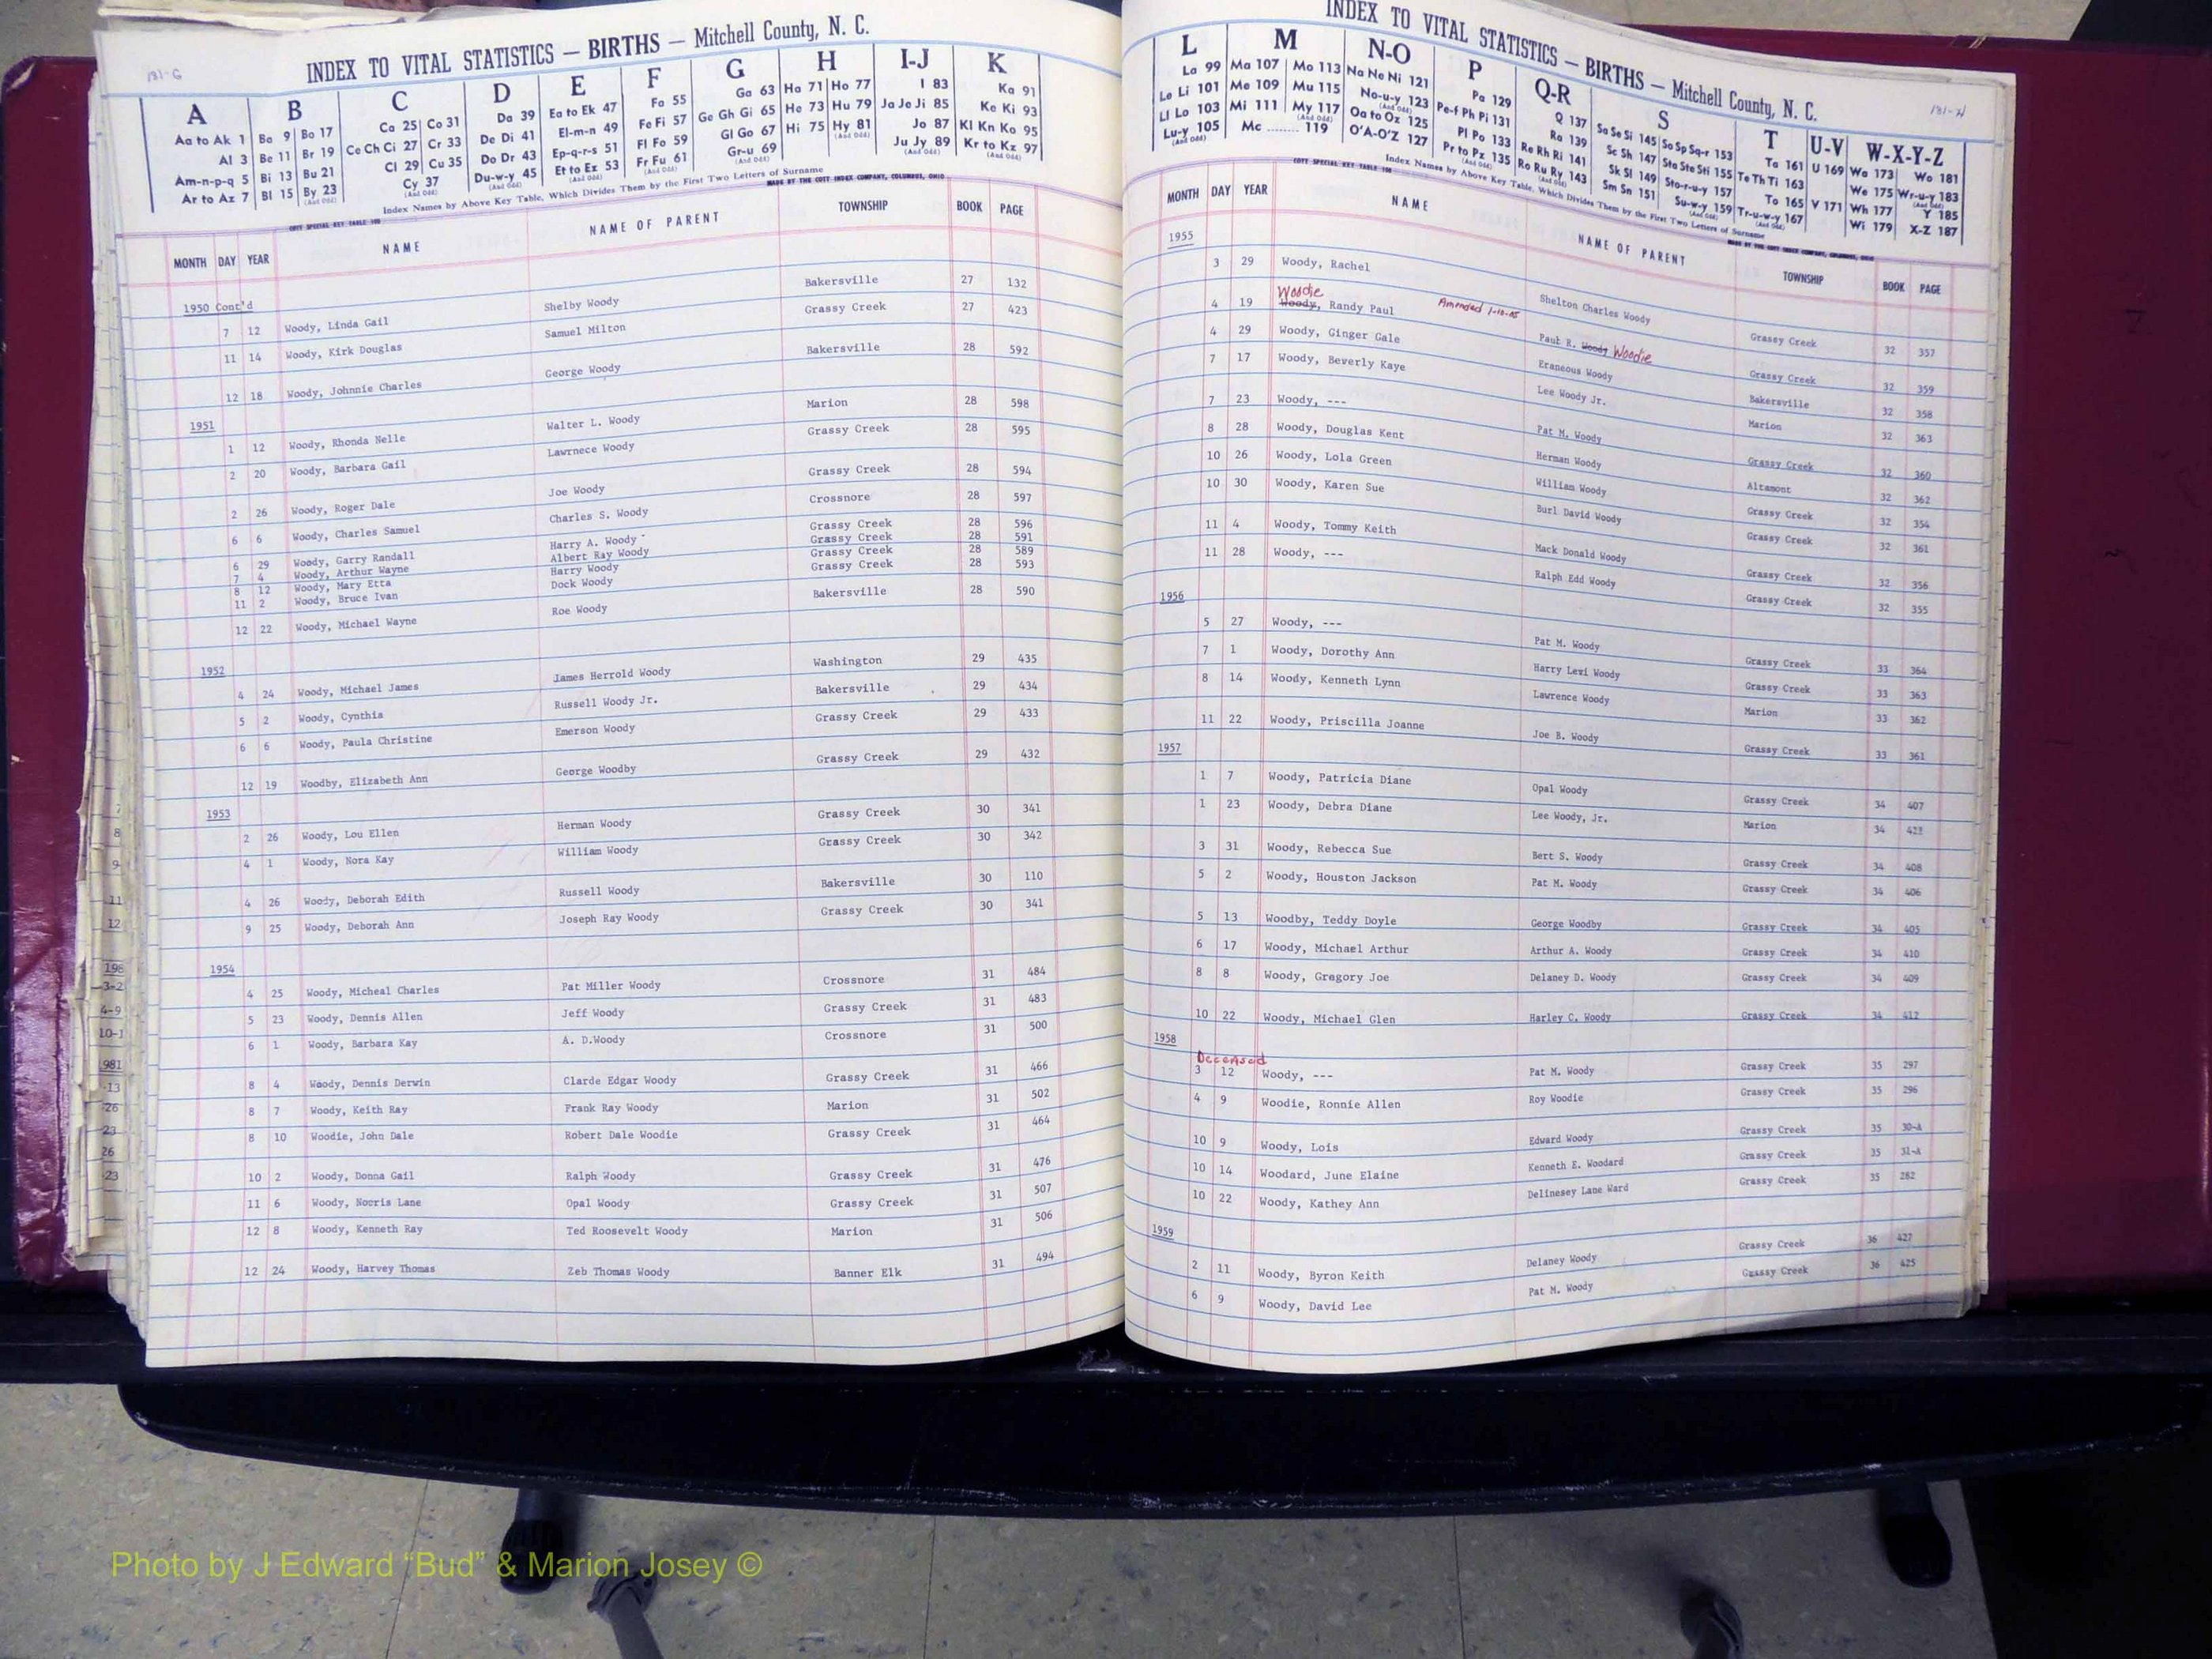 131-G
INDEX TO VITAL STATISTICS — BIRTHS — Mitchell County, N. C.
A B C D E F G H I-J K
Aa to Ak 1 Ba 9 Bo 17 Ca 25 Co 31 Da 39 Ea to Ek 47 Fa 55 Ga 63 Ha 71 Ho 77 I 83 Ka 91
Al 3 Be 11 Br 19 Ce Ch Ci 27 Cr 33 De Di 41 El-m-n 49 Fe Fi 57 Ge Gh Gi 65 He 73 Hu 79 Ja Je Ji 85 Ke Ki 93
Am-n-p-q 5 Bi 13 Bu 21 Cl 29 Cu 35 Do Dr 43 Ep-q-r-s 51 Fl Fo 59 Gl Go 67 Hi 75 Hy 81 Jo 87 Kl Kn Ko 95
Ar to Az 7 Bl 15 By 23 Cy 37 Du-w-y 45 Et to Ez 53 Fr Fu 61 Gr-u 69 Ju Jy 89 Kr to Kz 97
Index Names by Above Key Table, Which Divides Them by the First Two Letters of Surname
COTT SPECIAL KEY TABLE 188 MADE BY THE COTT INDEX COMPANY, COLUMBUS, OHIO
MONTH DAY YEAR NAME NAME OF PARENT TOWNSHIP BOOK PAGE
1950 Cont'd
7 12 Woody, Linda Gail Shelby Woody Bakersville 27 132
11 14 Woody, Kirk Douglas Samuel Milton Grassy Creek 27 423
12 18 Woody, Johnnie Charles George Woody Bakersville 28 592
1951
1 12 Woody, Rhonda Nelle Walter L. Woody Marion 28 598
2 20 Woody, Barbara Gail Lawrnece Woody Grassy Creek 28 595
2 26 Woody, Roger Dale Joe Woody Grassy Creek 28 594
6 6 Woody, Charles Samuel Charles S. Woody Crossnore 28 597
6 29 Woody, Garry Randall Harry A. Woody Grassy Creek 28 596
7 4 Woody, Arthur Wayne Albert Ray Woody Grassy Creek 28 591
8 12 Woody, Mary Etta Harry Woody Grassy Creek 28 589
11 2 Woody, Bruce Ivan Dock Woody Grassy Creek 28 593
12 22 Woody, Michael Wayne Roe Woody Bakersville 28 590
1952
4 24 Woody, Michael James James Herrold Woody Washington 29 435
5 2 Woody, Cynthia Russell Woody Jr. Bakersville 29 434
6 6 Woody, Paula Christine Emerson Woody Grassy Creek 29 433
12 19 Woodby, Elizabeth Ann George Woodby Grassy Creek 29 432
1953
2 26 Woody, Lou Ellen Herman Woody Grassy Creek 30 341
4 1 Woody, Nora Kay William Woody Grassy Creek 30 342
4 26 Woody, Deborah Edith Russell Woody Bakersville 30 110
9 25 Woody, Deborah Ann Joseph Ray Woody Grassy Creek 30 341
1954
4 25 Woody, Micheal Charles Pat Miller Woody Crossnore 31 484
5 23 Woody, Dennis Allen Jeff Woody Grassy Creek 31 483
6 1 Woody, Barbara Kay A. D.Woody Crossnore 31 500
8 4 Woody, Dennis Derwin Clarde Edgar Woody Grassy Creek 31 466
8 7 Woody, Keith Ray Frank Ray Woody Marion 31 502
8 10 Woodie, John Dale Robert Dale Woodie Grassy Creek 31 464
10 2 Woody, Donna Gail Ralph Woody Grassy Creek 31 476
11 6 Woody, Norris Lane Opal Woody Grassy Creek 31 507
12 8 Woody, Kenneth Ray Ted Roosevelt Woody Marion 31 506
12 24 Woody, Harvey Thomas Zeb Thomas Woody Banner Elk 31 494
131-H
INDEX TO VITAL STATISTICS — BIRTHS — Mitchell County, N. C.
L M N-O P Q-R S T U-V W-X-Y-Z
La 99 Ma 107 Mo 113 Na Ne Ni 121 Pa 129 Q 137 Sa Se Si 145 So Sp Sq-r 153 Ta 161 U 169 Wa 173 Wo 181
Le Li 101 Me 109 Mu 115 No-u-y 123 Pe-f Ph Pi 131 Ra 139 Sc Sh 147 Sta Ste Sti 155 Te Th Ti 163 We 175 Wr-u-y 183
Ll Lo 103 Mi 111 My 117 Oa to Oz 125 Pl Po 133 Re Rh Ri 141 Sk Sl 149 Sto-r-u-y 157 To 165 V 171 Wh 177 Y 185
Lu-y 105 Mc 119 O'A-O'Z 127 Pr to Pz 135 Ro Ru Ry 143 Sm Sn 151 Su-w-y 159 Tr-u-w-y 167 Wi 179 X-Z 187
Index Names by Above Key Table, Which Divides Them by the First Two Letters of Surname
COTT SPECIAL KEY TABLE 188 MADE BY THE COTT INDEX COMPANY, COLUMBUS, OHIO
MONTH DAY YEAR NAME NAME OF PARENT TOWNSHIP BOOK PAGE
1955
3 29 Woody, Rachel Shelton Charles Woody Grassy Creek 32 357
Woodie
4 19 Woody, Randy Paul Amended 1-10-05 Paul R. Woody Woodie Grassy Creek 32 359
4 29 Woody, Ginger Gale Eraneous Woody Bakersville 32 358
7 17 Woody, Beverly Kaye Lee Woody Jr. Marion 32 363
7 23 Woody, --- Pat M. Woody Grassy Creek 32 360
8 28 Woody, Douglas Kent Herman Woody Altamont 32 362
10 26 Woody, Lola Green William Woody Grassy Creek 32 354
10 30 Woody, Karen Sue Burl David Woody Grassy Creek 32 361
11 4 Woody, Tommy Keith Mack Donald Woody Grassy Creek 32 356
11 28 Woody, --- Ralph Edd Woody Grassy Creek 32 355
1956
5 27 Woody, --- Pat M. Woody Grassy Creek 33 364
7 1 Woody, Dorothy Ann Harry Levi Woody Grassy Creek 33 363
8 14 Woody, Kenneth Lynn Lawrence Woody Marion 33 362
11 22 Woody, Priscilla Joanne Joe B. Woody Grassy Creek 33 361
1957
1 7 Woody, Patricia Diane Opal Woody Grassy Creek 34 407
1 23 Woody, Debra Diane Lee Woody, Jr. Marion 34
3 31 Woody, Rebecca Sue Bert S. Woody Grassy Creek 34 408
5 2 Woody, Houston Jackson Pat M. Woody Grassy Creek 34 406
5 13 Woodby, Teddy Doyle George Woodby Grassy Creek 34 405
6 17 Woody, Michael Arthur Arthur A. Woody Grassy Creek 34 410
8 8 Woody, Gregory Joe Delaney D. Woody Grassy Creek 34 409
10 22 Woody, Michael Glen Harley C. Woody Grassy Creek 34 412
1958
Deceased
3 12 Woody, --- Pat M. Woody Grassy Creek 35 297
4 9 Woodie, Ronnie Allen Roy Woodie Grassy Creek 35 296
10 9 Woody, Lois Edward Woody Grassy Creek 35 30-A
10 14 Woodard, June Elaine Kenneth E. Woodard Grassy Creek 35 31-A
10 22 Woody, Kathey Ann Delinesey Lane Ward Grassy Creek 35 282
1959
2 11 Woody, Byron Keith Delaney Woody Grassy Creek 36 427
6 9 Woody, David Lee Pat M. Woody Grassy Creek 36 425
Photo by J Edward "Bud" & Marion Josey ©